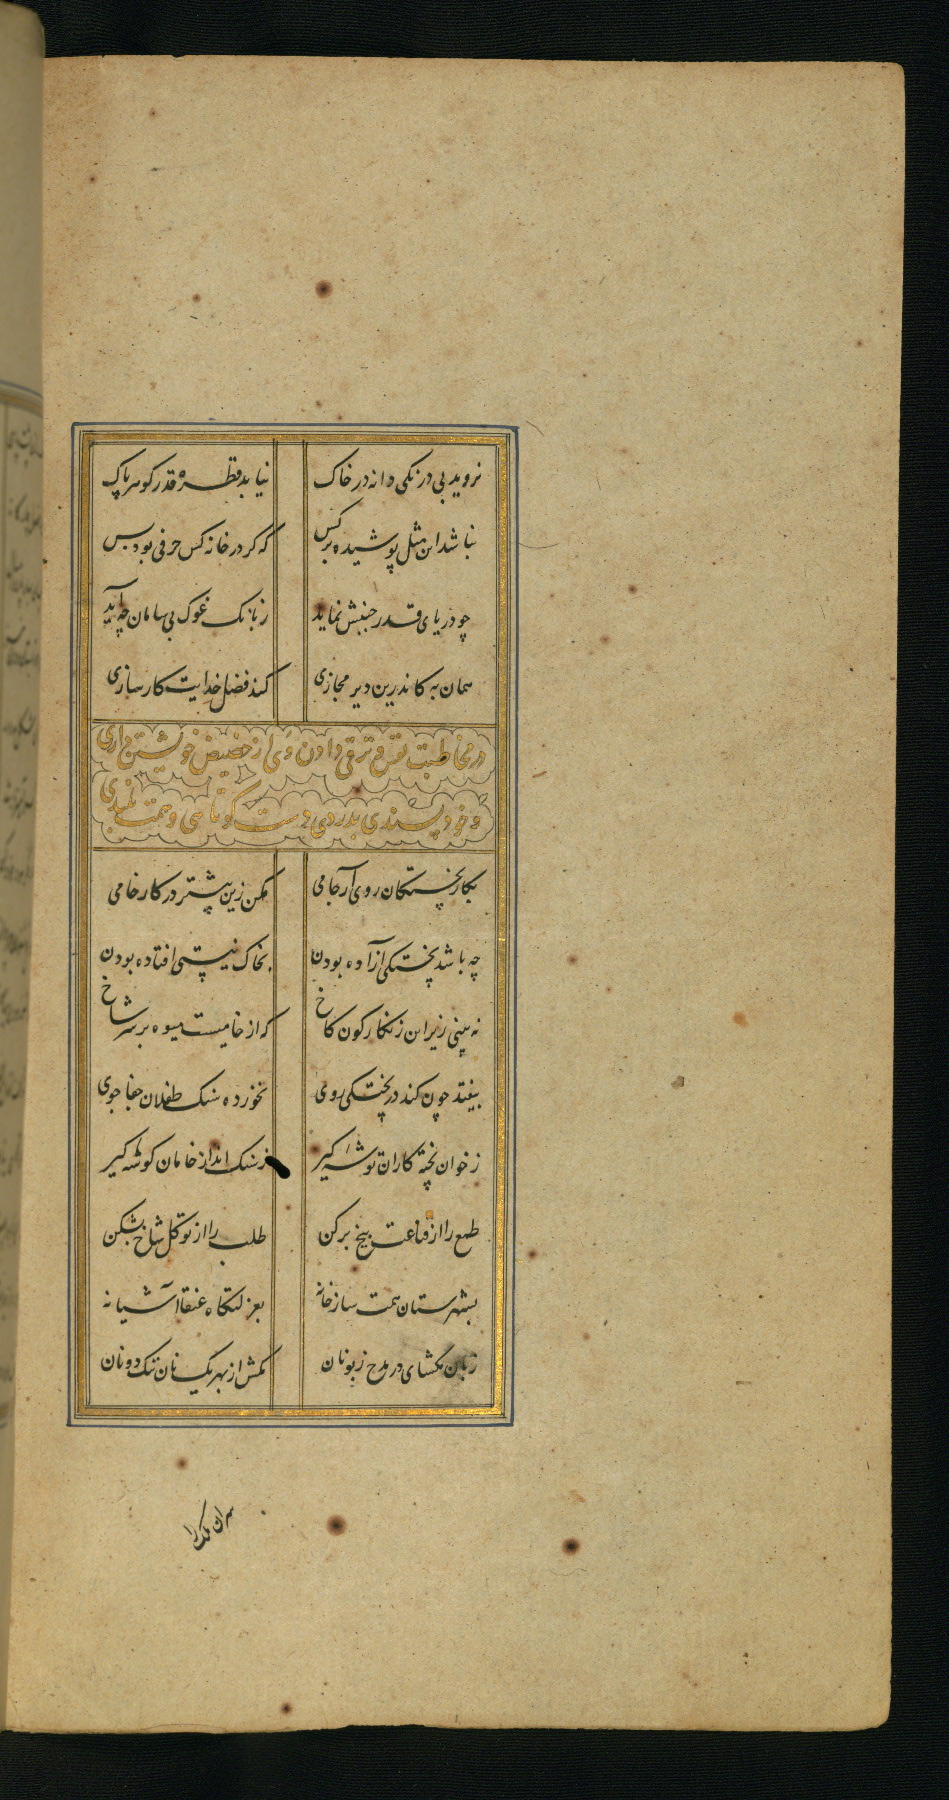 نروید بی درنکی دانه در خاک نیابد قطره قدر کوهر پاک
نباشد این مثل پوشیده بر کس که کر در خانه کس حرفی بود بس
چو دریای قدر جنبش نماید ز بانک غوک بی سامان چه آید
همان به کاندرین دیر مجازی کند فضل خدایت کارسازی
در مخاطبت نفس و ترقی دادن وی از حضیض خویشتن داری
و خود پسندی بدر دی دست کوتاهی و همت بلندی
بکار پختکان روی آر جامی مکن زین پیشتر در کار خامی
چه باشد پختکی آزاده بودن بخاک نیستی افتاده بودن
نه بینی زیر این زنکارکون کاخ که از خامیست میوه بر سر شاخ
بیفتد چون کند در پختکی روی نخورده سنک طفلان جفاجوی
ز خوان پخته کاران توشه کیر ز سنک انداز خامان کوشه کیر
طمع را از قناعت بیخ برکن طلب را از توکل شاخ بشکن
بشهرستان همت ساز خانه بعزلتکاه عنقا آشیانه
زبان مکشای در مدح زبونان مکش از بهر یک نان ننک دونان
سران ملک را